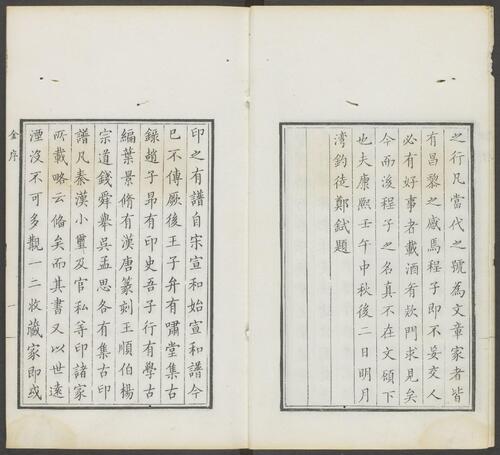 之行凡當代之號為文章家者皆
有昌黎之感焉程子即不妄交人
必有好事者載酒肴欵門求見矣
今而後程子之名真不在文碩下
也夫康熙壬午中秋後二日明月
灣釣徒鄭鉽題
印之有譜自宋宣和始宣和譜今
已不傳厥後王子弁有嘯堂集古
錄趙子昻有印史吾子行有學古
編葉景脩有漢唐篆刻王順伯楊
宗道錢舜舉吳孟思各有集古印
譜凡秦漢小璽及官私等印諸家
所載略云俻矣而其書又以世遠
湮没不可多觀一二收藏家即或
金序
一